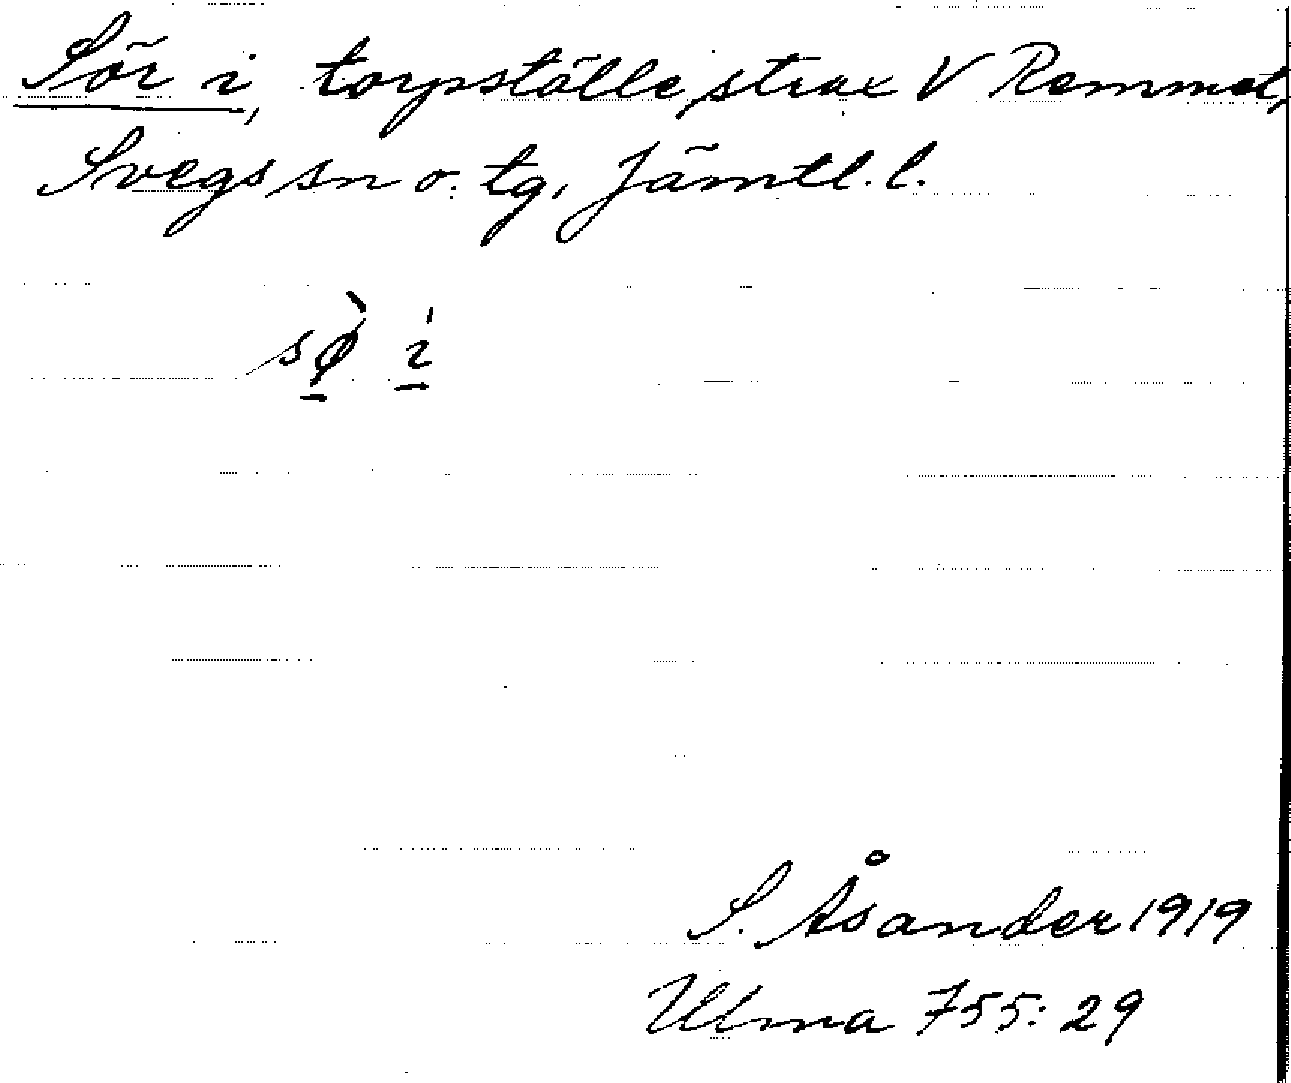 Sör i, torpställe, strax V Remmet,
Svegs sn o. tg. Jämtl. l.
sø̀ i
S. Åsander 1919
Ulma 755: 29